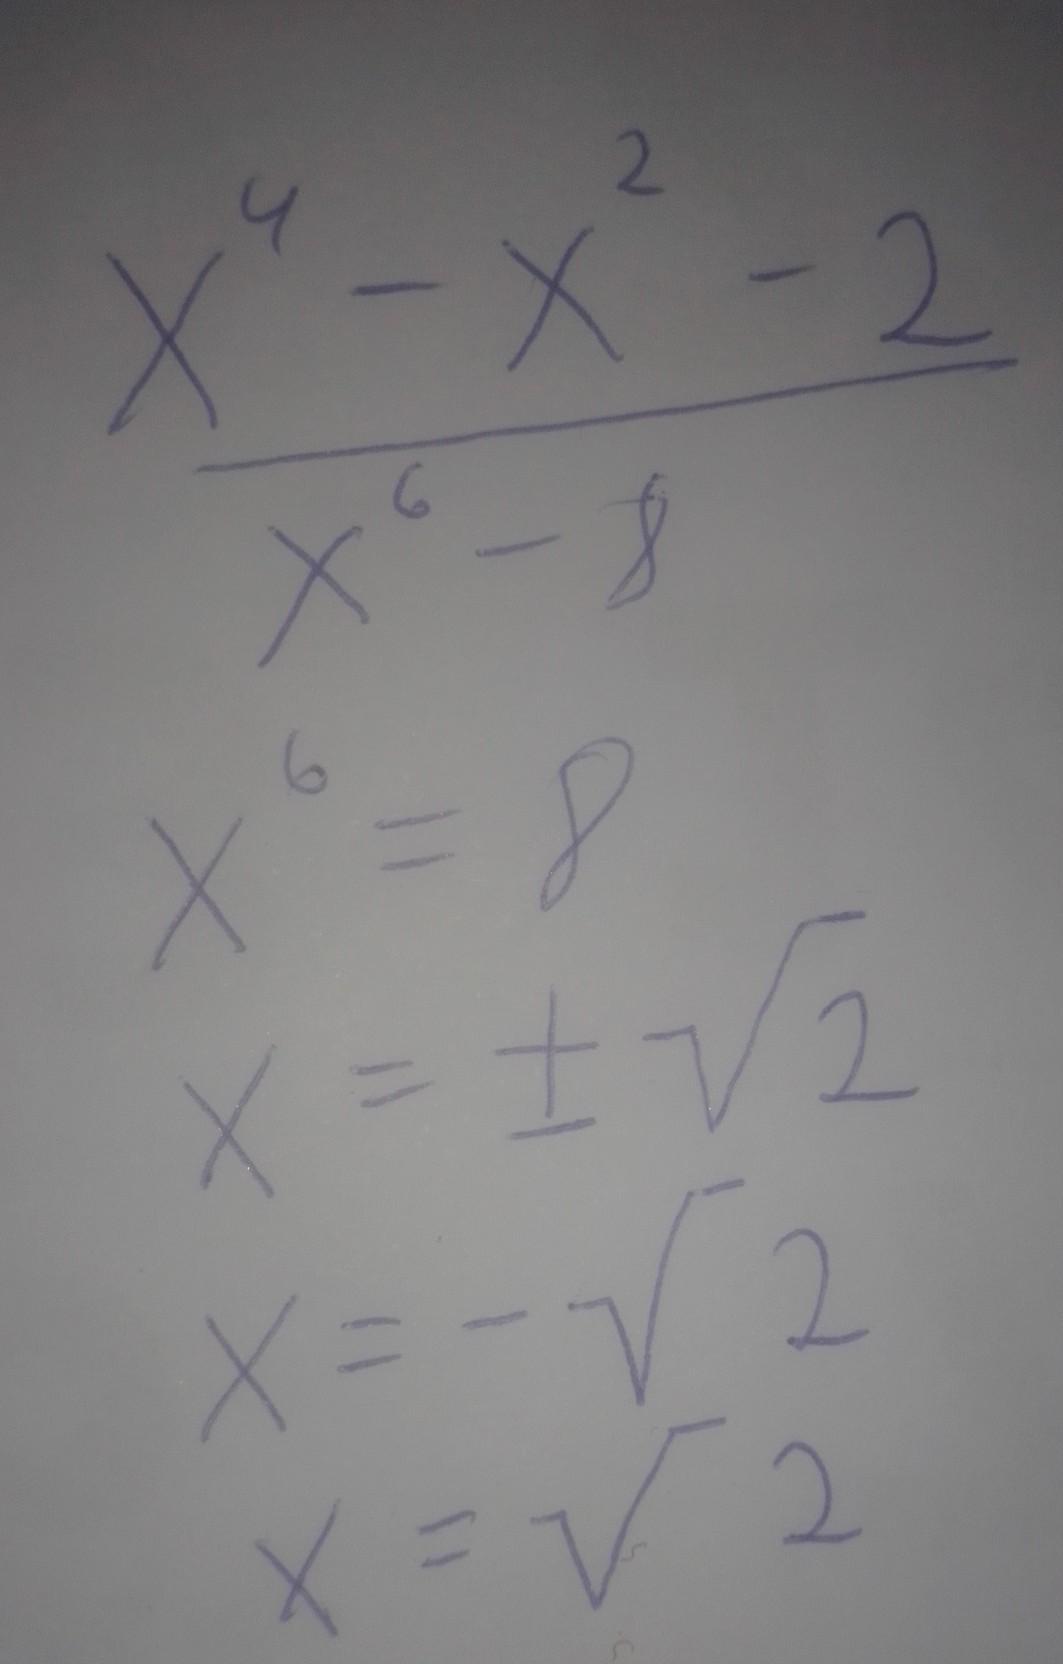 x⁴ - x² - 2
x⁶ - 8
x⁶ = 8
x = ± √2
x = - √2
x = √2